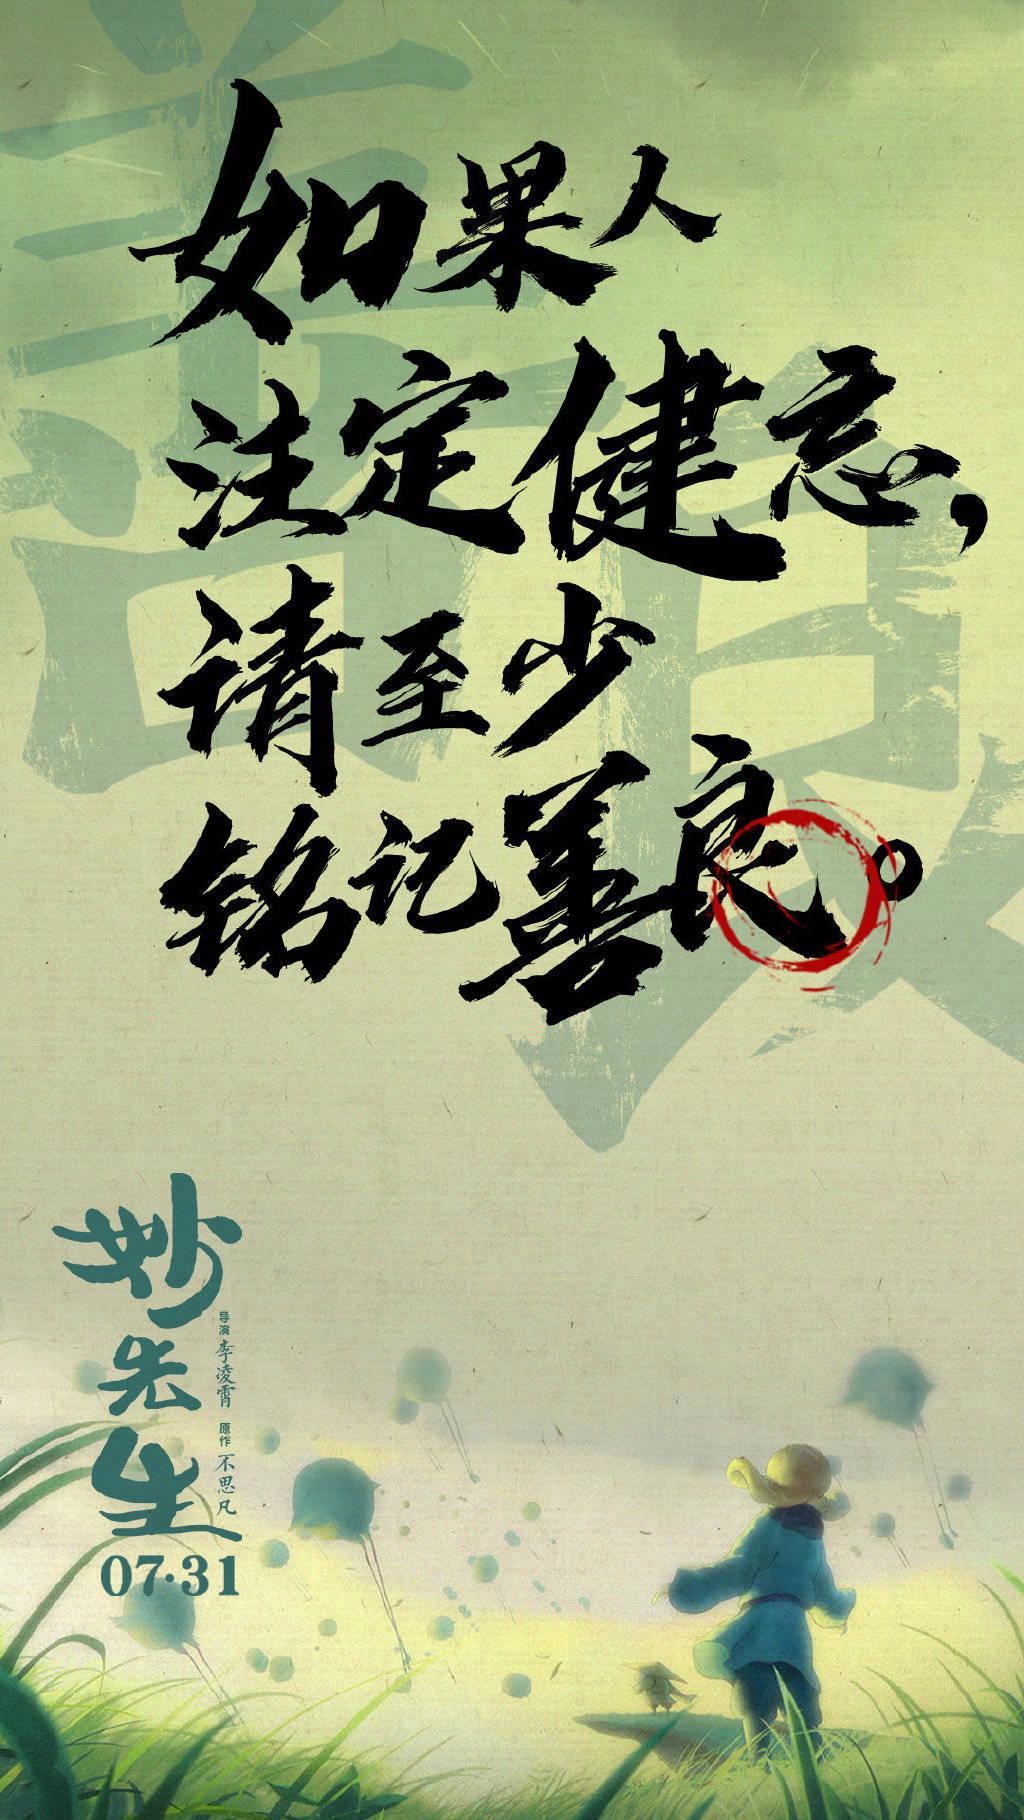 如果人
注定健忘，
请至少
铭记善良。
善良
妙先生
导演 李凌霄 原作 不思凡
07·31